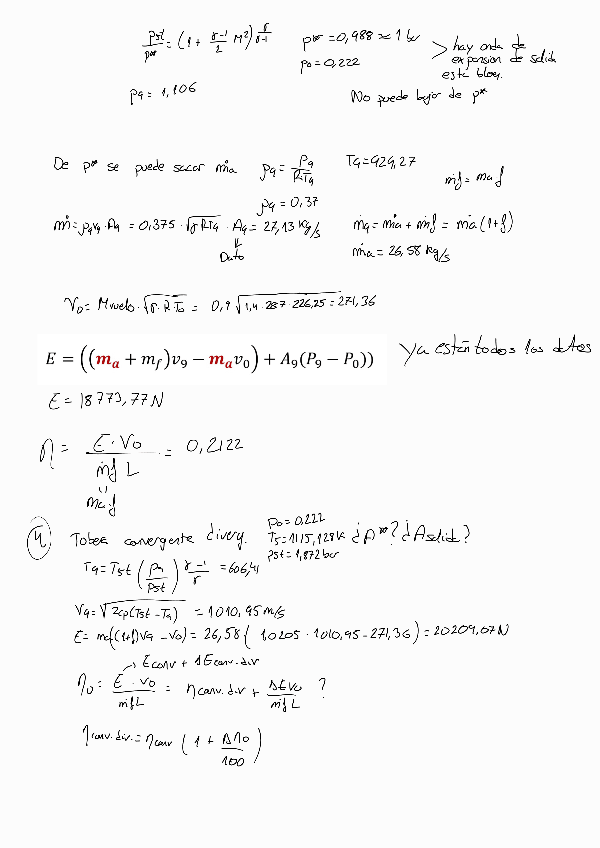 pst/p* = (1 + γ-1/2 M²)^γ/γ-1    p* = 0,988 ≈ 1 bar
p0 = 0,222
> hay onda de expansion de salida
está bloq.
p9 = 1,106    No puede bajar de p*
De p* se puede sacar ṁa    ρ9 = P9/RT9    T9 = 929,27
ṁf = ṁa f
ρ9 = 0,37
ṁ = ρ9 v9 · A9 = 0,375 · √γRT9 · A9 = 27,13 kg/s    ṁ9 = ṁa + ṁf = ṁa (1+f)
Dato    ṁa = 26,58 kg/s
V0 = Mvuelo · √γ · R · T0 = 0,9 √1,4 · 287 · 226,25 = 271,36
E = ((mₐ + m_f)v₉ − mₐv₀) + A₉(P₉ − P₀))    Ya están todos los datos
E = 18773,77 N
η = E · V0 / ṁf L = 0,2122
ṁa · f
4 Tobera convergente diverg.    p0 = 0,222
T5 = 1115,128 K    ¿A*? ¿Asalida?
p5t = 1,872 bar
T9 = T5t (p9/p5t)^γ-1/γ = 606,41
V9 = √2cp(T5t - T9) = 1010,95 m/s
E = ma((1+f)V9 - V0) = 26,58 (1,0205 · 1010,95 - 271,36) = 20209,07 N
→ Econv + ΔEconv.div
η0 = E · V0 / ṁf L = ηconv.div + ΔE V0 / ṁf L ?
ηconv.div. = ηconv (1 + Δη0/100)